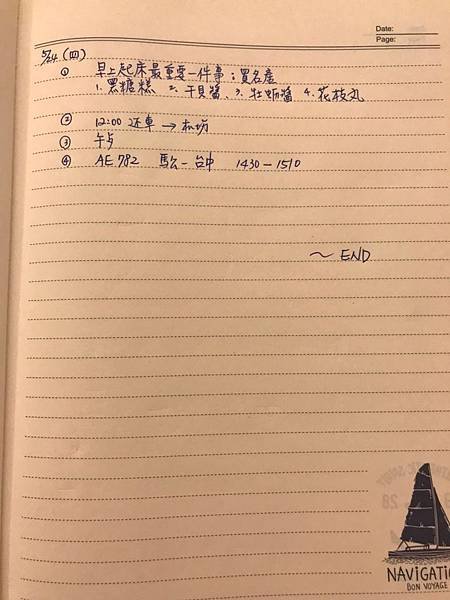 Date:
Page:
5/24 (四)
① 早上起床最重要一件事；買名產
1. 黑糖糕 2. 干貝醬、3. 牡蠣醬 4. 花枝丸
② 12:00 还車 → 机場
③ 午
④ AE 782 馬公 - 台中 1430 - 1510
~ END
NAVIGATI
BON VOYAGE